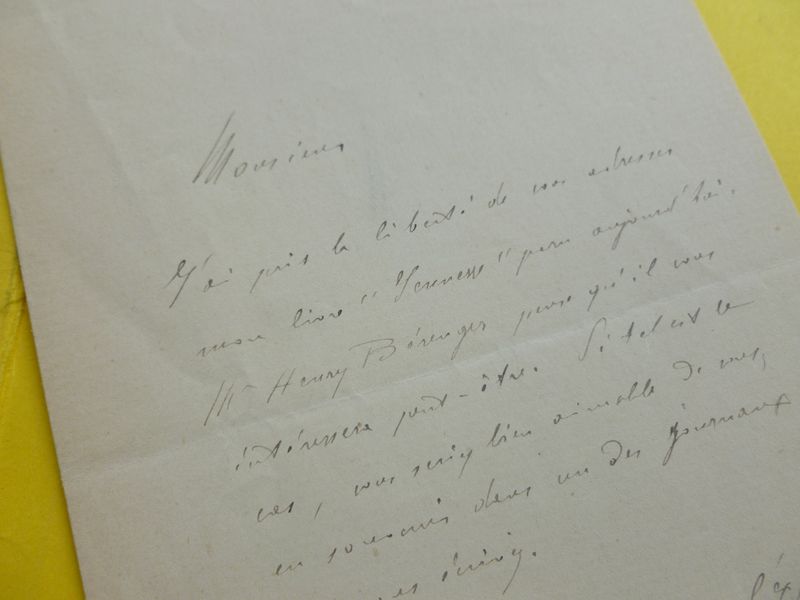 Monsieur
J'ai pris la liberté de vous adresser
mon livre "Jeunesse" paru aujourd'hui.
Mr Henry Bérenger pense qu'il vous
intéressera peut-être. Si tel est le
cas, vous seriez bien aimable de vous
en souvenir dans un des journaux
écrivez.